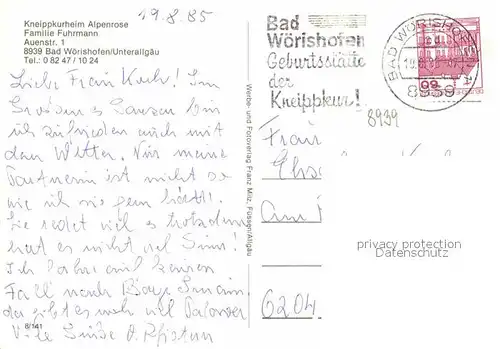 Kneippkurheim Alpenrose
Familie Fuhrmann
Auenstr. 1
8939 Bad Wörishofen/Unterallgäu
Tel.: 0 82 47 / 10 24
19.8.85
Liebe Frau
Im Grossen u. Ganzen bin
ich zufrieden auch mit
dem Wetter. Nur meine
Partnerin ist nicht so
wie ich sie gern hätte.
Sie redet viel u. trotzdem
hat es nicht viel Sinn!
Ich fahr auf keinen
Fall nach
da gibt es noch viel
Viele Grüße
8/141
Werbe- und Fotoverlag Franz Milz, Füssen/Allgäu
Bad
Wörishofen
Geburtsstätte
der
Kneippkur!
BAD WÖRISHOFEN
8939
8939
Frau
Am
6204
privacy protection
Datenschutz